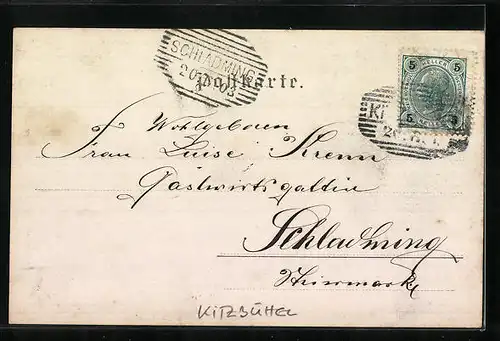 SCHLADMING
Postkarte.
5 HELLER 5
5 5
Wohlgeboren
Frau Luise Krenn
Gastwirtsgattin
Schladming
Steiermark
KITZBÜHEL